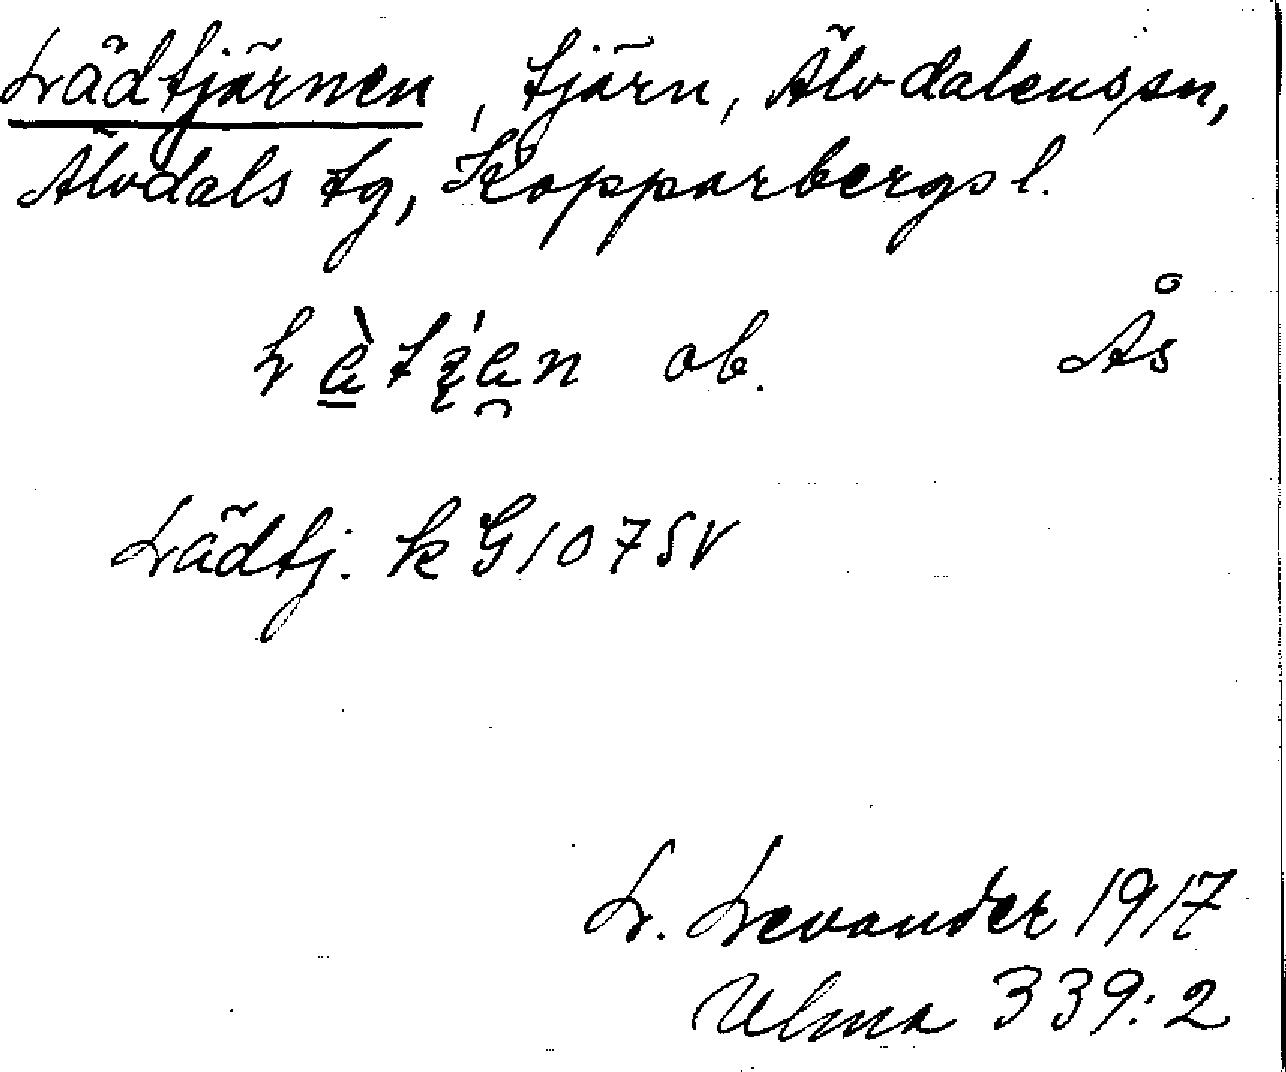 Lädtjärnen, tjärn, Älvdalens sn,
Älvdals tg, Kopparbergs l.
ob. Ås
Lädtj. k G 107 SV
L. Levander 1917
Ulma 339:2